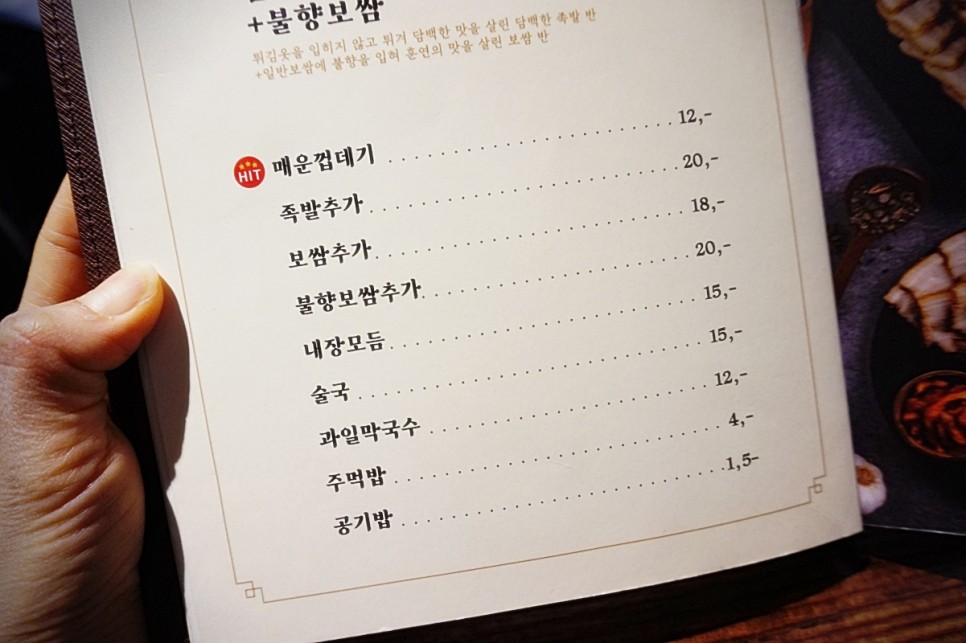 +불향보쌈
튀김옷을 입히지 않고 튀겨 담백한 맛을 살린 담백한 족발 반
+일반보쌈에 불향을 입혀 훈연의 맛을 살린 보쌈 반
HIT 매운껍데기 12,-
족발추가 20,-
보쌈추가 18,-
불향보쌈추가 20,-
내장모듬 15,-
술국 15,-
과일막국수 12,-
주먹밥 4,-
공기밥 1,5-